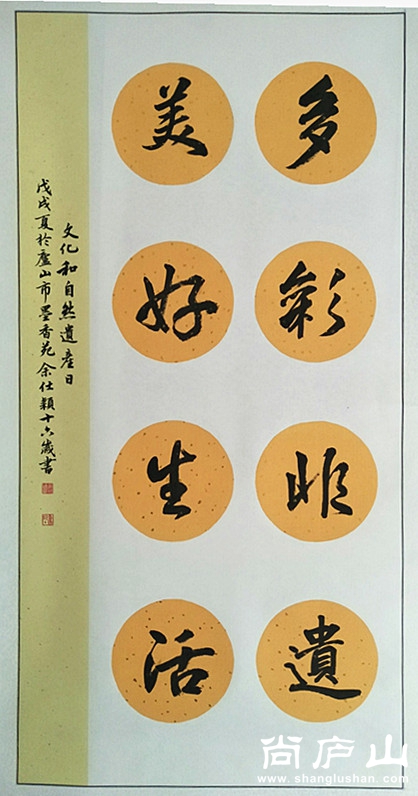 多彩非遺
美好生活
文化和自然遺產日
戊戌夏於廬山市墨香苑余仕穎十六歲書
尚庐山
www.shanglushan.com